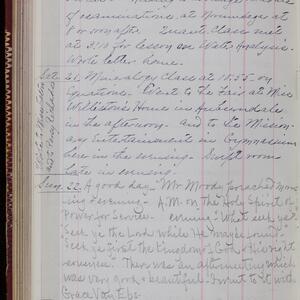 of examinations, at Noumdega at
8 o'clock after. Quant. Class met
at 3.10 for lesson on Water Analysis.
Wrote letter home.
Sat. 21. Mineralogy Class at 10.55 on
Equations. Went to the Fair at Miss
Williston's Home in Auberndale
in the afternoon - and to the Mission-
ary Entertainment in Gymnasium
here in the evening. Swept room
late in evening.
Sun. 22. A good day - Mr. Moody preached morn-
ing & evening - A.M. on the Holy Spirit &
Power for Service. evening "What seek ye"
"Seek ye the Lord while He may be found"-
"Seek ye first the Kingdom of God & his right-
eousness". There was an after meeting which
was very good & beautiful. I went to it with
Grace Van Etts.
Wrote to
and to